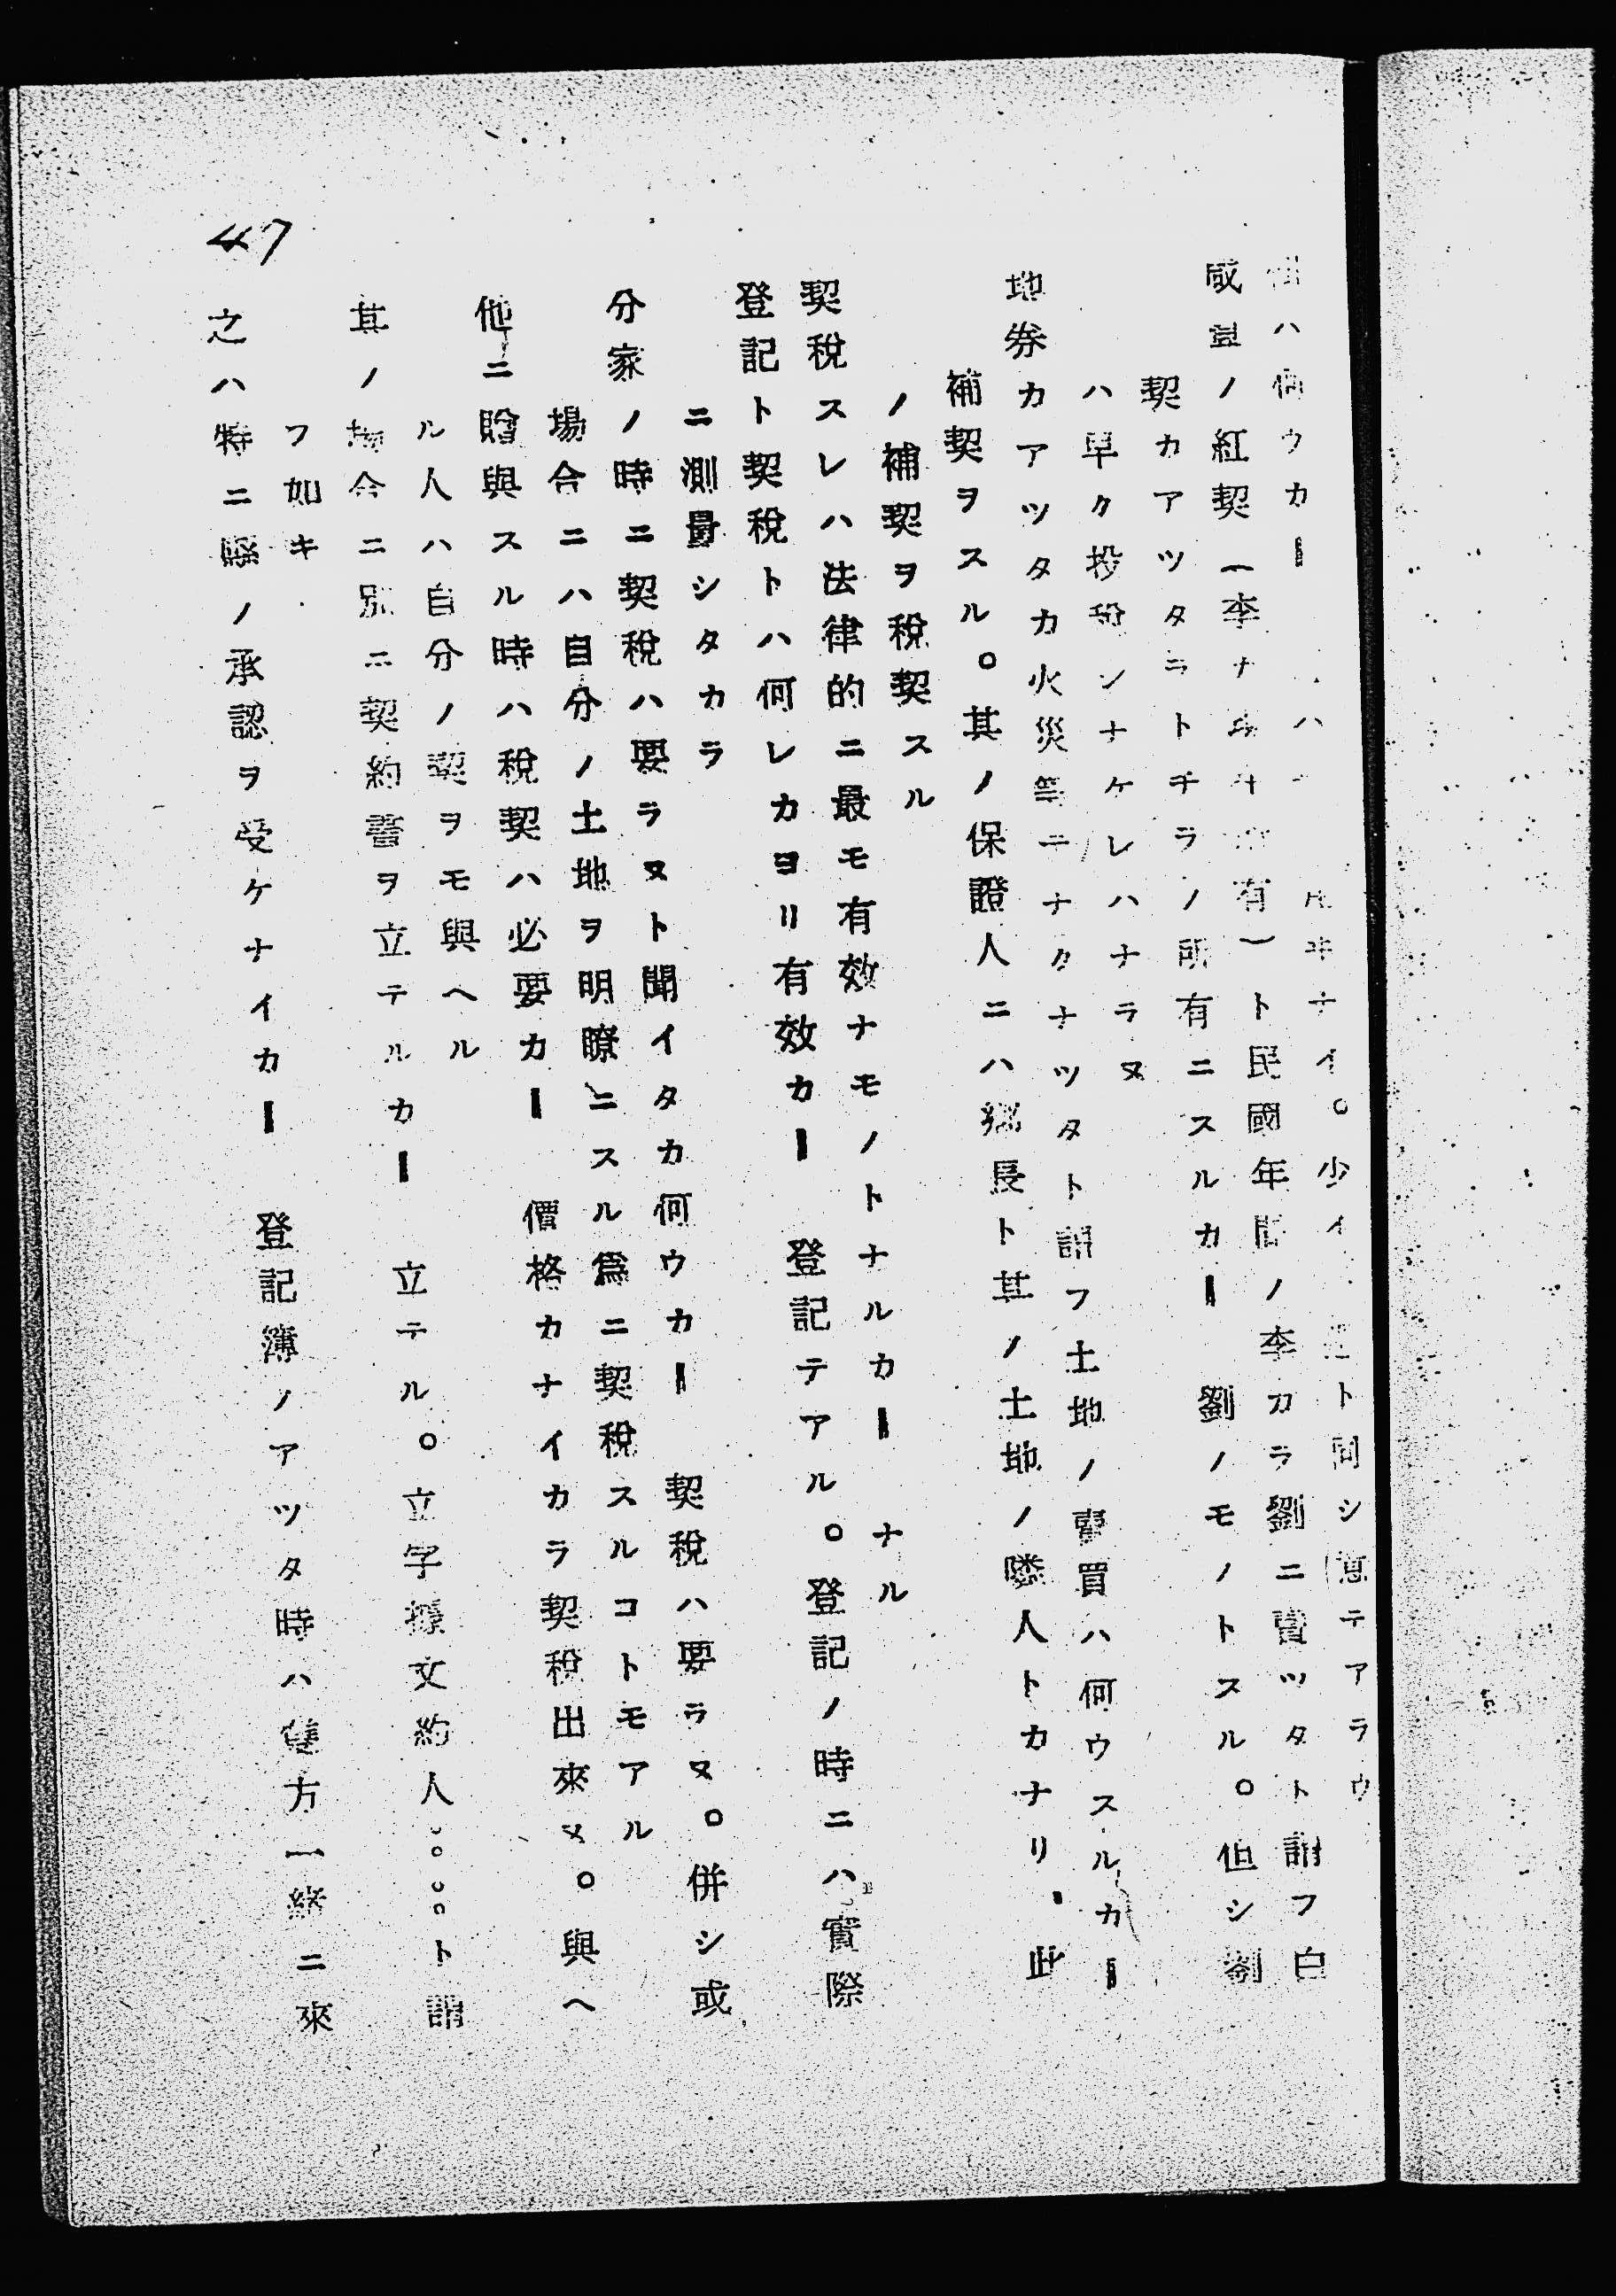 ハ何ウカー ナイ。少イト同シ意テアラウ
咸豊ノ紅契(李ナル者ノ所有)ト民國年間ノ李カラ劉ニ賣ツタト謂フ白
契カアツタニトチラノ所有ニスルカー 劉ノモノトスル。但シ劉
ハ早ク投税シナケレハナラヌ
地券カアツタカ火災等ニナクナツタト謂フ土地ノ賣買ハ何ウスルカー
補契ヲスル。其ノ保證人ニハ鄕長ト其ノ土地ノ隣人トカナリ、此
ノ補契ヲ税契スル
契税スレハ法律的ニ最モ有效ナモノトナルカー ナル
登記ト契税トハ何レカヨリ有效カー 登記テアル。登記ノ時ニハ實際
ニ測量シタカラ
分家ノ時ニ契税ハ要ラヌト聞イタカ何ウカー 契税ハ要ラヌ。併シ或
場合ニハ自分ノ土地ヲ明瞭ニスル爲ニ契税スルコトモアル
他ニ贈與スル時ハ税契ハ必要カー 價格カナイカラ契税出來ヌ。與ヘ
ル人ハ自分ノ契ヲモ與ヘル
其ノ場合ニ別ニ契約書ヲ立テルカー 立テル。立字據文約人。。。。ト謂
フ如キ
之ハ特ニ縣ノ承認ヲ受ケナイカー 登記簿ノアツタ時ハ雙方一緒ニ來
47